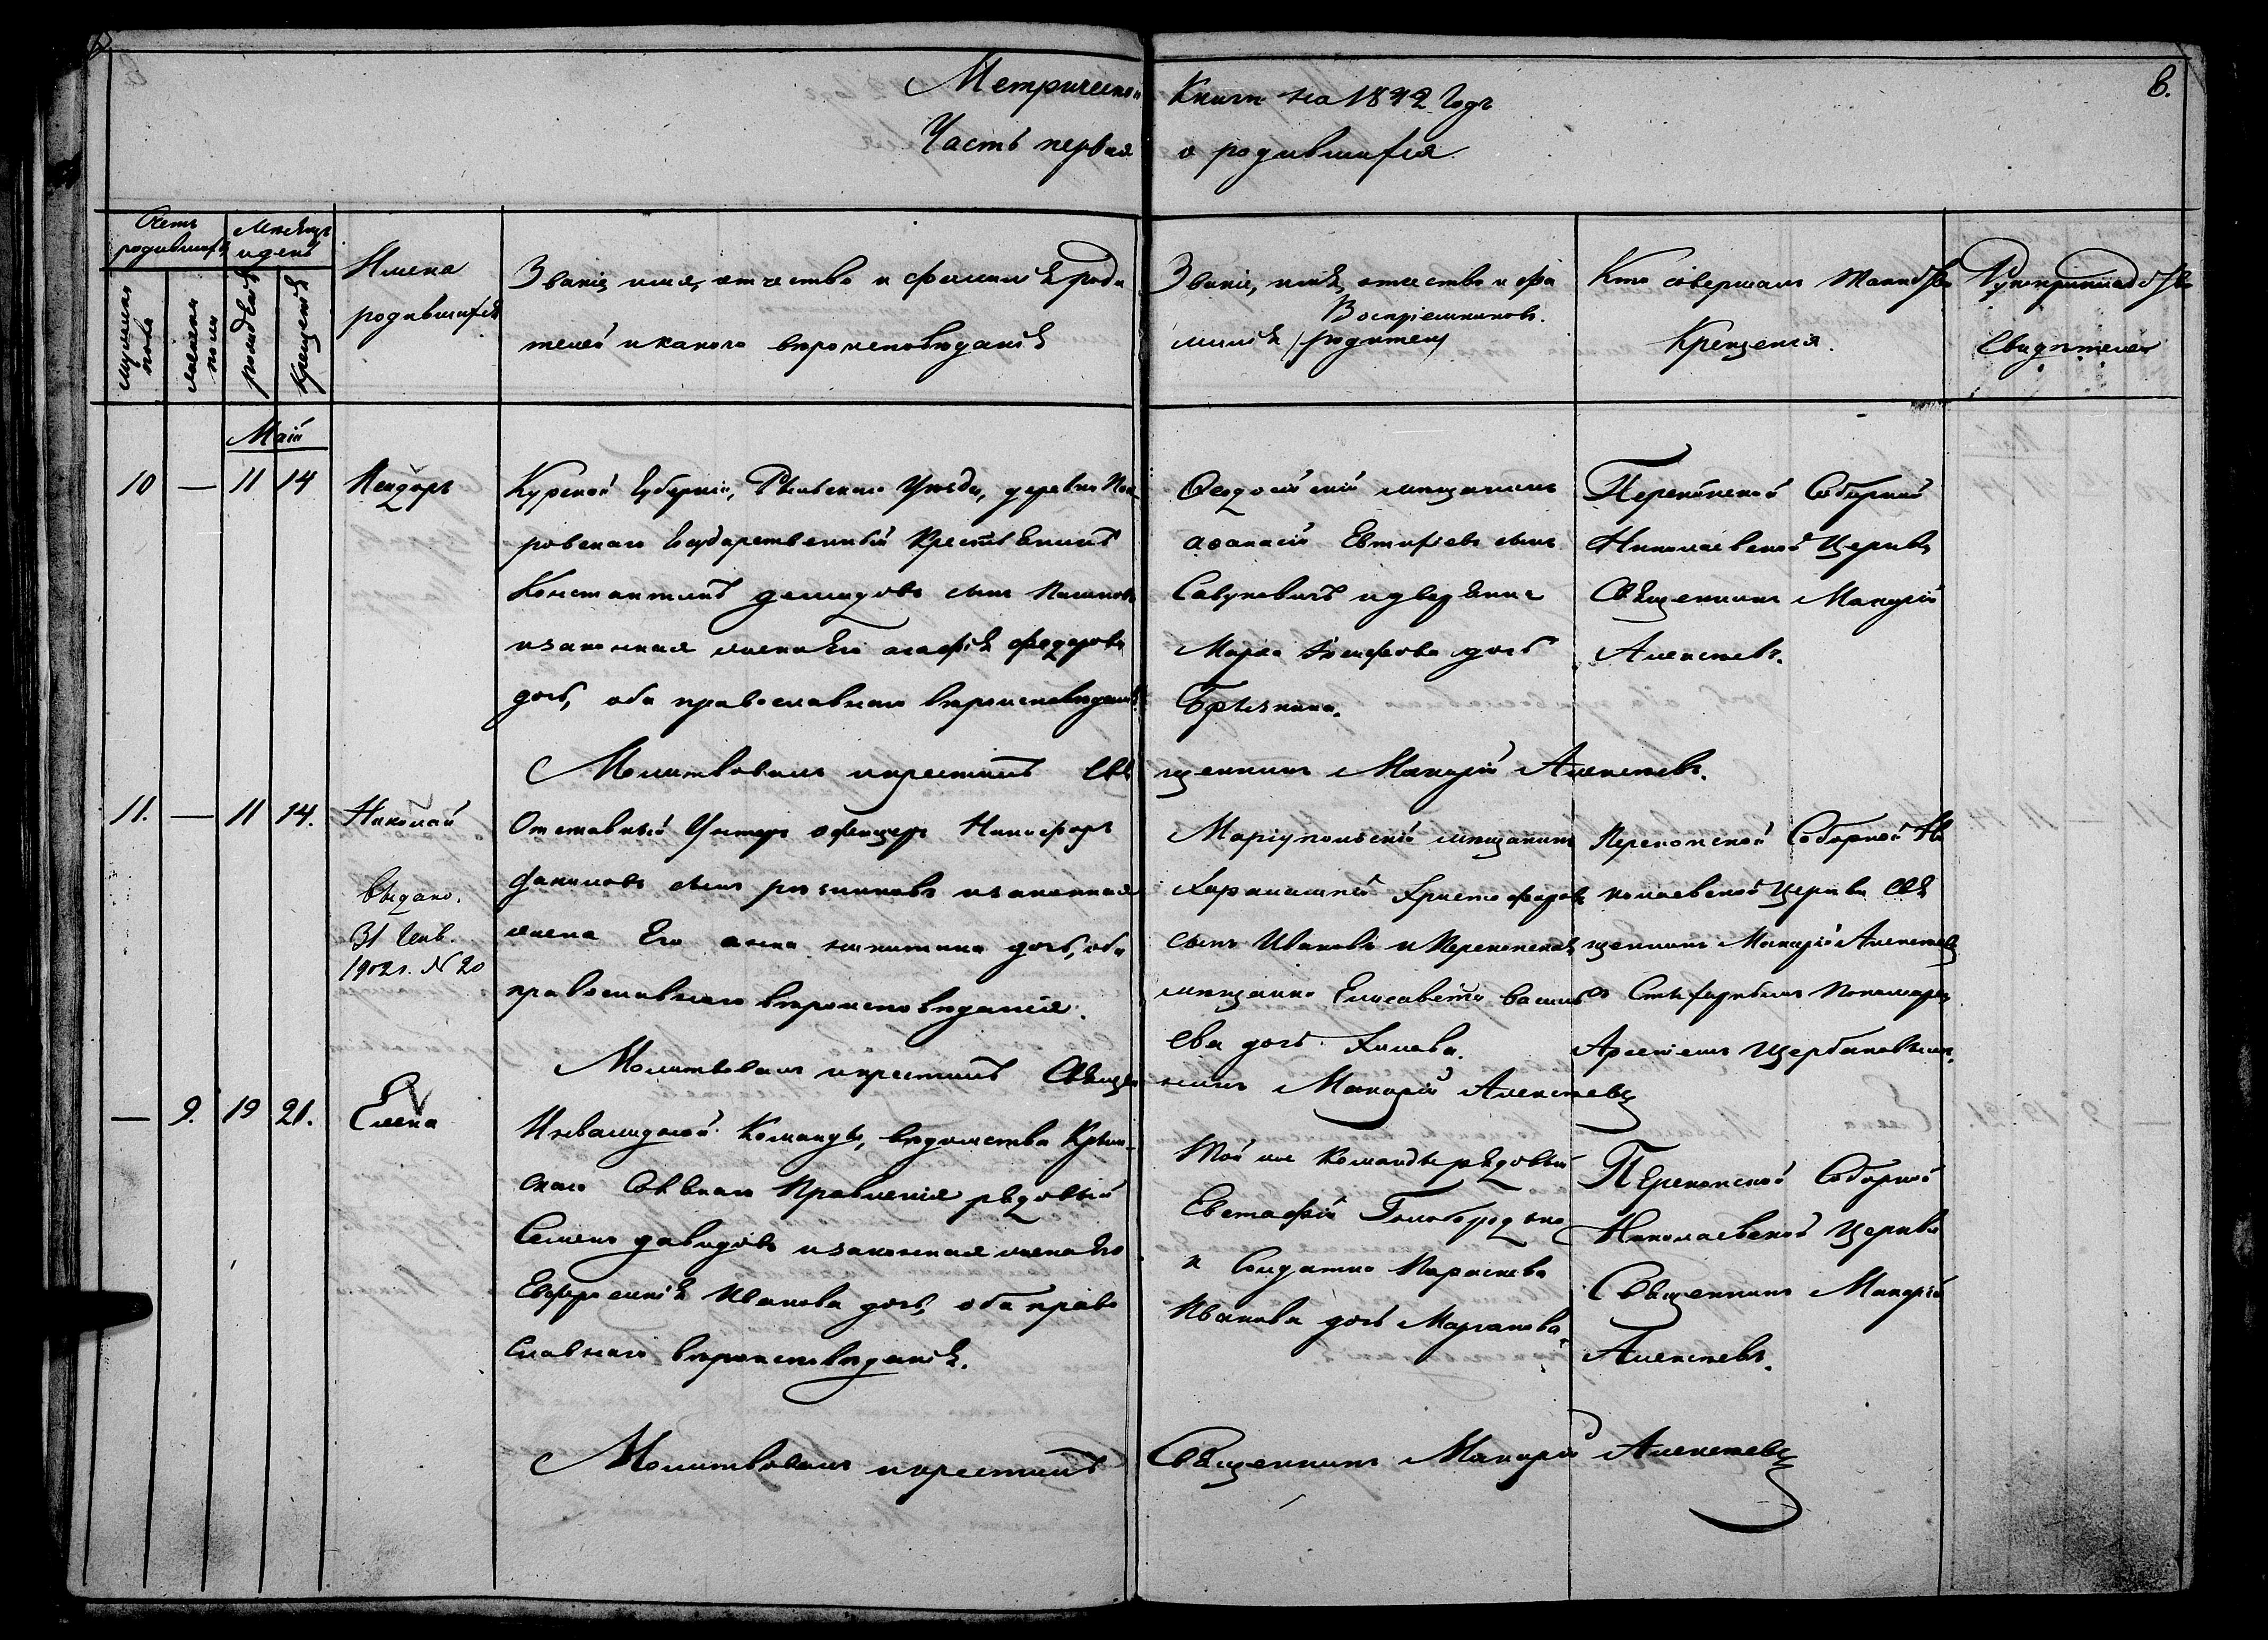 Метрической Книги на 1842 Годъ
6.
Часть первая о родившихся
Счетъ родившихся
Месяцъ и день
мужеска пола
женска пола
рожденія
крещенія
Имена родившихся
Званіе, имя, отчество и фамилія роди
телей и какого вероисповеданія
Званіе, имя, отчество и фа
миліи Воспріемниковъ. /родител/
Кто совершалъ таинство
Крещенія.
Рукоприкладство
Свидетелей
Маій
10 — 11 14
Курской Губерніи, Рыльскаго Уезда, деревни
ровскаго Государственный Крестьянинъ
Константинъ демидовъ сынъ
и законная жена Его агафія федорова
дочь, оба православнаго вероисповеданія.
Феодосійскій мещанинъ
афанасій Евтифіевъ сынъ
и дворянка
Марѳа дочь
Перекопской Соборной
Николаевской Церкви
Священникъ Макарій
Алексеевъ.
Молитвовалъ и крестилъ Священникъ Макарій Алексеевъ.
11. — 11 14. Николай
Выдано.
31 Генв.
1902 г. N 20
Отставный Унтеръ офицеръ Никифоръ
сынъ и законная
жена Его анна никитина дочь, оба
православнаго вероисповеданія.
Маріупольскій мещанинъ
Харлампій Христофоровъ
сынъ Ивановъ и Перекопская
мещанка Елисавета Василь
ева дочь
Перекопской Соборной Ни
колаевской Церкви Свя
щенникъ Макарій Алексеевъ
съ Стихарнымъ Пономаремъ
Арсеніемъ Щербаковымъ.
Молитвовалъ и крестилъ Священникъ Макарій Алексеевъ
— 9. 19 21. Елена
Инвалидной Команды, ведомства Крым-
скаго Солянаго Правленія рядовый
Семенъ давидовъ и законная жена Его
Евфросинія Иванова дочь, оба право
славнаго вероисповеданія.
той же Команды рядовый
Евстафій Голобородько
и Солдатка Параскева
Иванова дочь
Перекопской Соборной
Николаевской Церкви
Священникъ Макарій
Алексеевъ.
Молитвовалъ и крестилъ Священникъ Макарій Алексеевъ